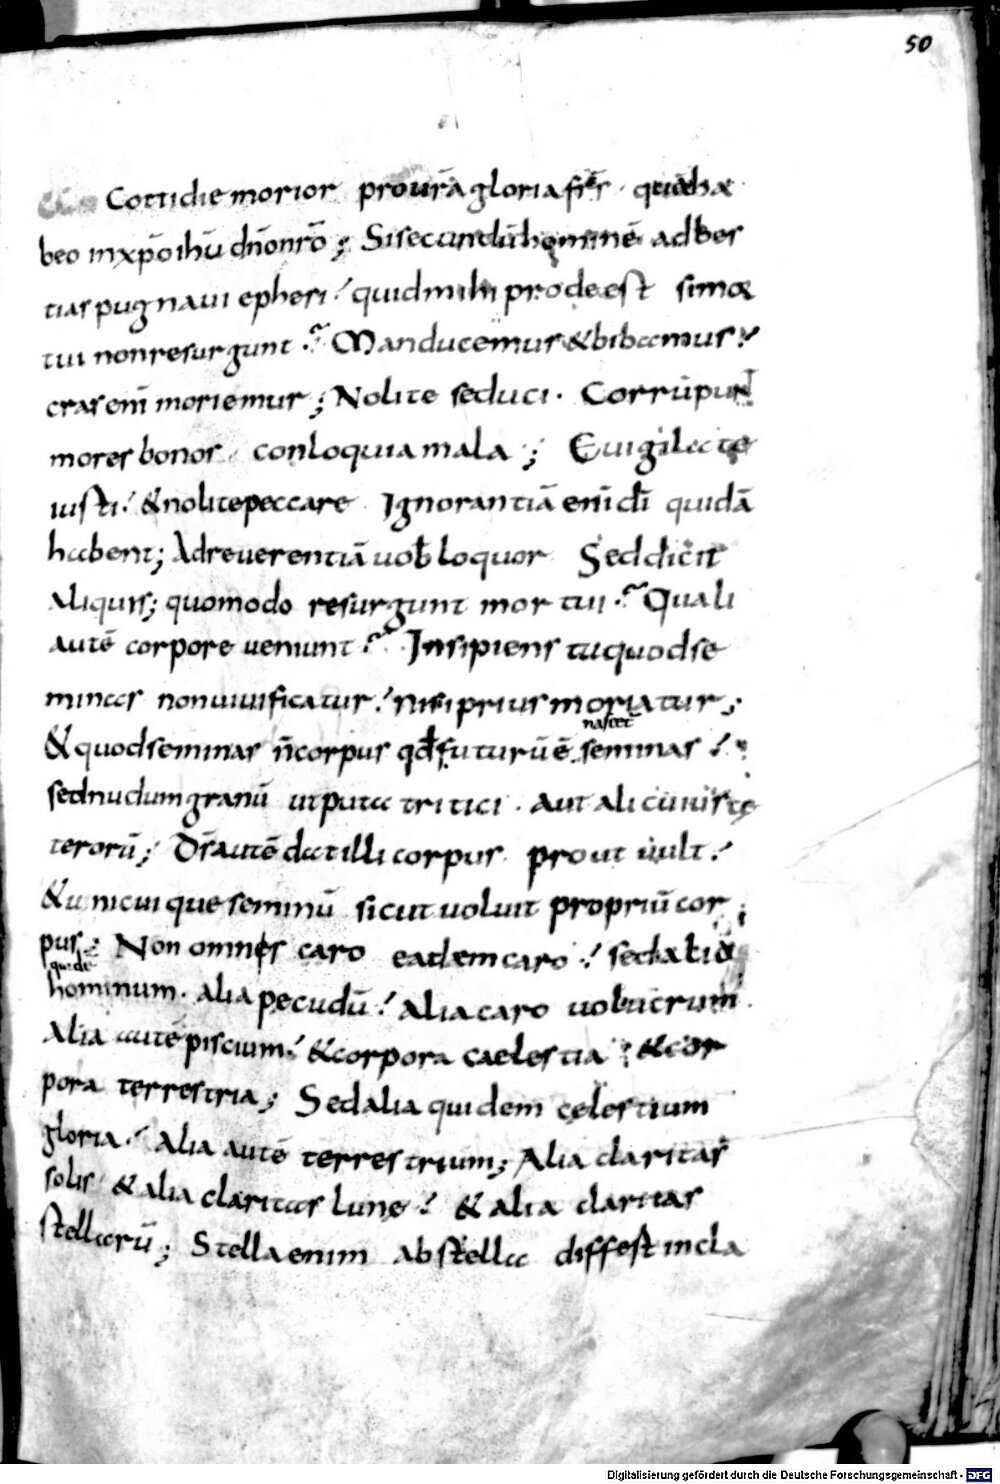 50
Cottidie morior prourāgloriafrs quāha
beo inxpōihū dn̄onrō; Sisecundūhominē adbes
tiaspugnaui ephesi quidmihi prodeest simor
tui nonresurgunt Manducemus &bibamus
crasenī moriemur; Nolite seduci. Corrūpunt
moresbonos conloquiamala; Euigilate
iusti &nolitepeccare Ignorantiā enī dī quidā
habent; Adreuerentiā uob loquor Seddicit
aliquis; quomodo resurgunt mortui Quali
autē corpore ueniunt Insipiens tuquodse
minas nonuiuificatur nisipriusmoriatur;
nascet
&quodseminas n̄corpus qdfuturūē seminas
sednudumgranū utputa tritici. aut alicuiusce
terorū; Dsautē datilli corpus prout uult
&unicuiqueseminū sicut uoluit propriūcor
pus; Non omnis caro eademcaro sedalia
quidē
hominum. alia pecudū Alia caro uolucrum.
Alia autē piscium &corpora caelestia &cor
pora terrestria; Sedalia quidem celestium
gloria alia autē terrestrium; Alia claritas
solis & alia claritas lune & alia claritas
stellarū; Stella enim ab stella differt incla
Digitalisierung gefördert durch die Deutsche Forschungsgemeinschaft - DFG